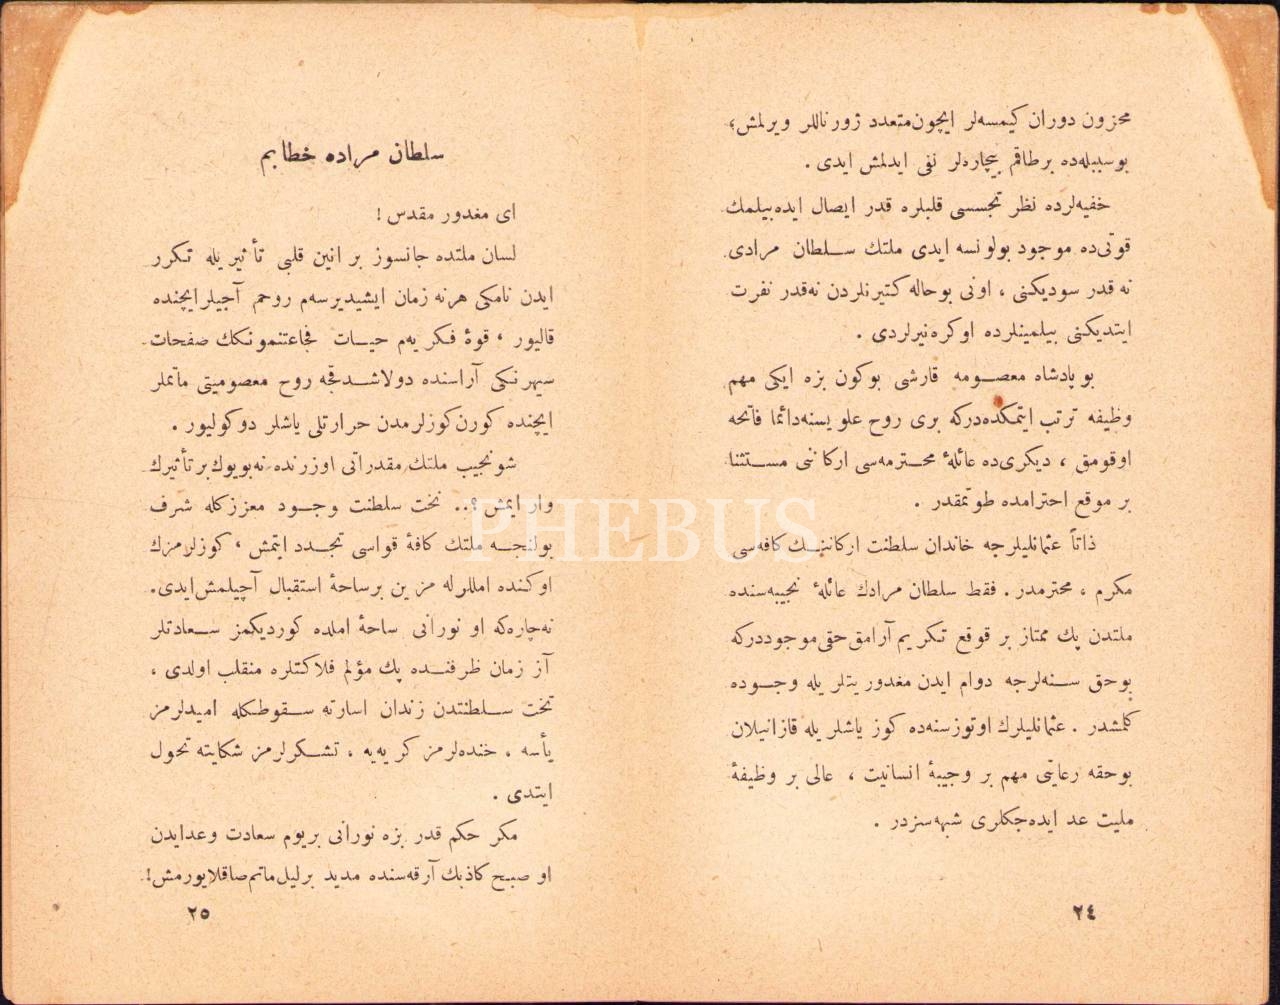 محزون دوران كيمسه‌لر ايچون متعدد ژورناللر ويرلمش؛
بوسببله‌ده برطاقم بيچاره‌لر نفى ايدلمش ايدى .
خفيه‌لرده نظر تجسسى قلبلره قدر ايصال ايده‌بيلمك
قوتى‌ده موجود بولونسه ايدى ملتك سلطان مرادى
نه قدر سوديكنى ، اونى بوحاله كتيرنلردن نه‌قدر نفرت
ايتديكنى بيلمينلرده اوكره‌نيرلردى .
بو پادشاه معصومه قارشى بوكون بزه ايكى مهم
وظيفه ترتب ايتمكده‌دركه برى روح علويسنه‌دائما فاتحه
اوقومق ، ديكرى‌ده عائلهٔ محترمه‌سى اركاننى مستثنا
بر موقع احترامده طوتمقدر .
ذاتاً عثمانليلرجه خاندان سلطنت اركاننك كافه‌سى
مكرم ، محترمدر . فقط سلطان مرادك عائلهٔ نجيبه‌سنده
ملتدن پك ممتاز بر قوقع تكريم آرامق حقى موجوددركه
بوحق سنه‌لرجه دوام ايدن مغدوريتلر يله وجوده
كلمشدر . عثمانليلرك اوتوز سنه‌ده كوز ياشلر يله قازانيلان
بوحقه رعايتى مهم بر وجيبهٔ انسانيت ، عالى بر وظيفهٔ
مليت عد ايده‌جكلرى شبهه‌سزدر .
٢٤
سلطان مراده خطابم
اى مغدور مقدس !
لسان ملتده جانسوز بر انين قلبى تأثيريله تكرر
ايدن نامكى هرنه زمان ايشيديرسه‌م روحم آجيلر ايچنده
قاليور ، قوهٔ فكريه‌م حيات فجاعتنمونكك صفحات
سيهرنكى آراسنده دولاشدقجه روح معصوميتى ماتملر
ايچنده كورن كوزلرمدن حرارتلى ياشلر دوكوليور .
شونجيب ملتك مقدراتى اوزرنده نه‌بويوك بر تأثيرك
وار ايمش ؟.. تخت سلطنت وجود معززكله شرف
بولنجه ملتك كافهٔ قواسى تجدد ايتمش ، كوزلرمزك
اوكنده امللرله مزين برساحهٔ استقبال آچيلمش‌ايدى.
نه‌چاره‌كه او نورانى ساحهٔ املده كورديكمز سعادتلر
آز زمان ظرفنده پك مؤلم فلاكتلره منقلب اولدى ،
تخت سلطنتدن زندان اسارته سقوطكله اميدلرمز
يأسه ، خنده‌لرمز كريه‌يه ، تشكرلرمز شكايته تحول
ايتدى .
مكر حكم قدر بزه نورانى بريوم سعادت وعدايدن
او صبح كاذبك آرقه‌سنده مديد برليل‌ماتم‌صاقلايورمش!
٢٥
PHEBUS